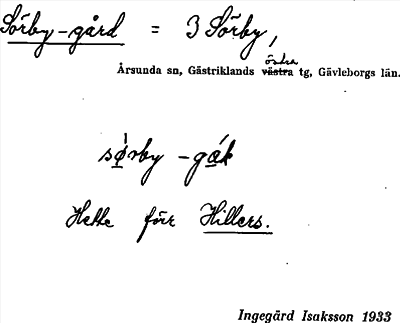 Sörby-gård = 3 Sörby,
östra
Årsunda sn, Gästriklands västra tg, Gävleborgs län.
Hette förr Hillers.
Ingegärd Isaksson 1933